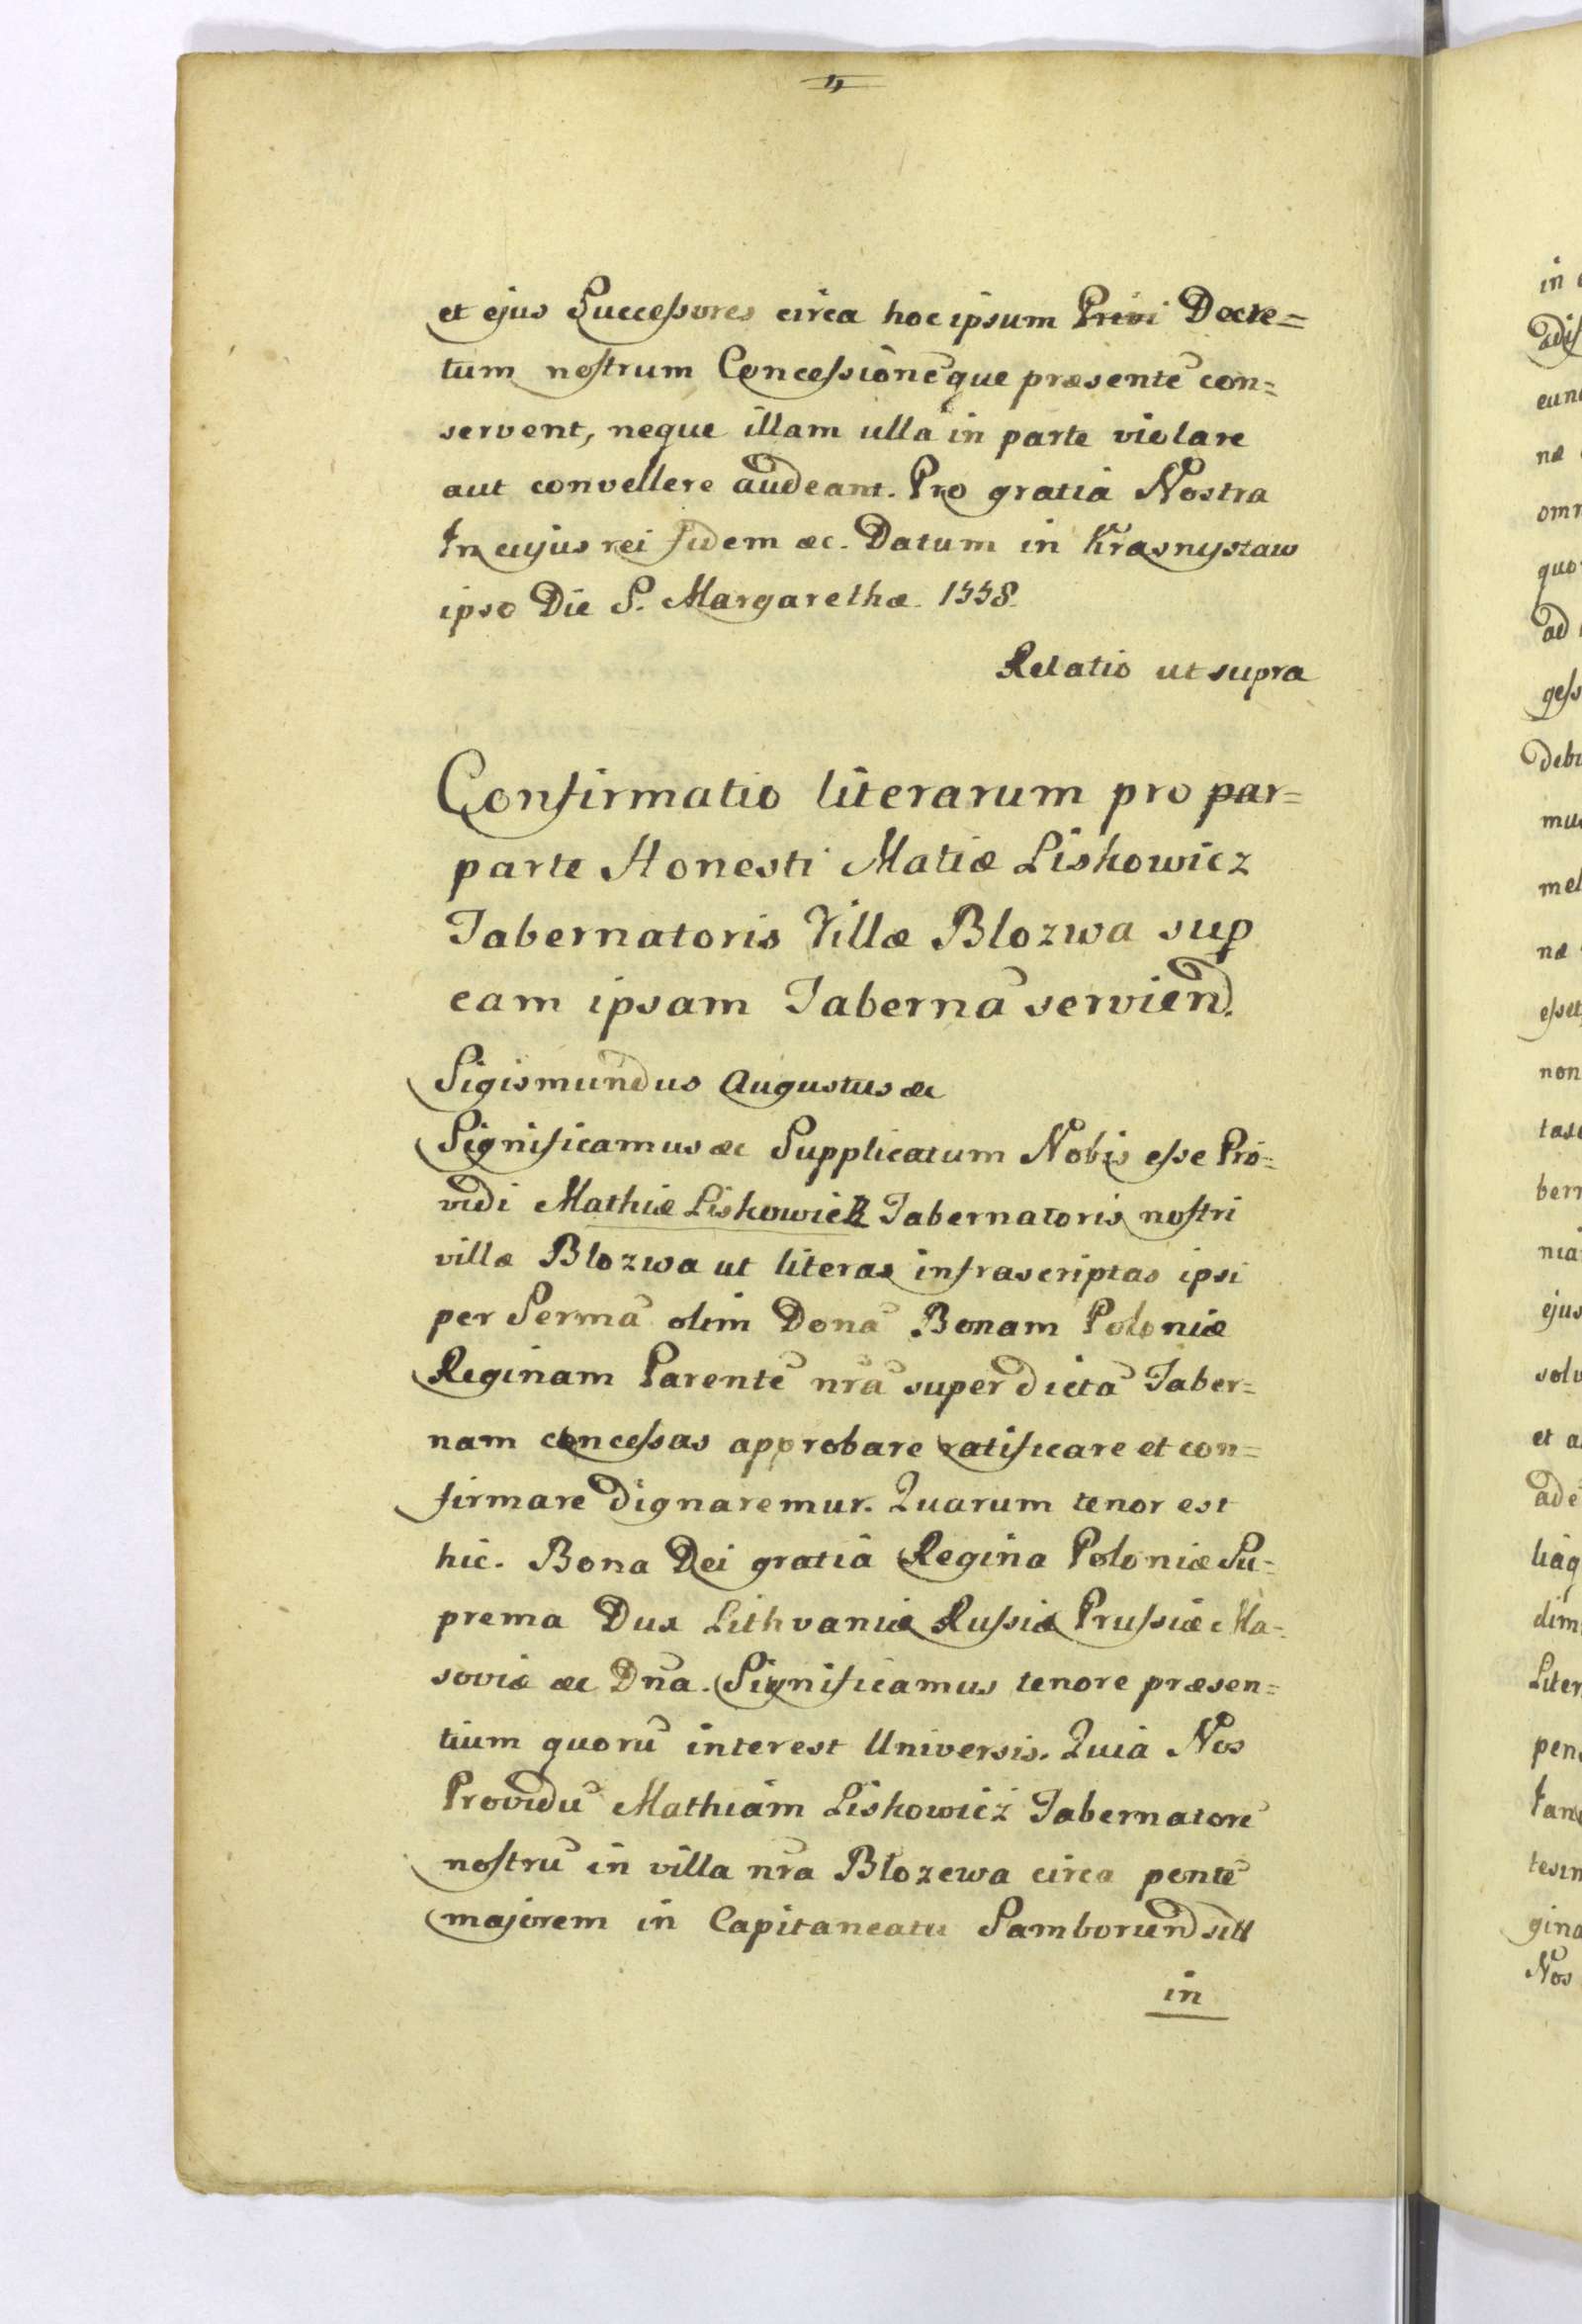 et ejus Successores circa hoc ipsum Privi Decre=
tum nostrum Concessionē que præsentē con=
servent, neque illam ulla in parte violare
aut convellere audeant. Pro gratia Nostra
In cujus rei fidem &c. Datum in Krasnystaw
ipso Die S. Margarethæ. 1558.
Relatio ut supra
Confirmatio literarum pro par=
parte Honesti Matiæ Liskowicz
Tabernatoris Villæ Blozwa sup
eam ipsam Tabernā serviend.
Sigismundus Augustus &c
Significamus &c Supplicatum Nobis esse Pro=
vidi Mathiæ Liskowicz Tabernatoris nostri
villæ Blozwa ut literas infrascriptas ipsi
per Sermā olim Donā Bonam Poloniæ
Reginam Parentē nrā super dictā Taber=
nam concessas approbare ratificare et con=
firmare dignaremur. Quarum tenor est
hic. Bona Dei gratiâ Regina Poloniæ Su=
prema Dux Lithvaniæ Russiæ Prussiæ Ma=
soviæ &c Dn̄a. Significamus tenore præsen=
tium quorū interest Universis. Quia Nos
Providū Mathiam Liskowicz Tabernatorē
nostrū in villa nr̄a Blozewa circa pontē
majorem in Capitaneatu Samboriend
in
in
eun
næ
omn
quo
ad
gess
debi
mel
næ
non
bern
nia
ejus
solv
et a
dim
Liter
pen
gina
Nos